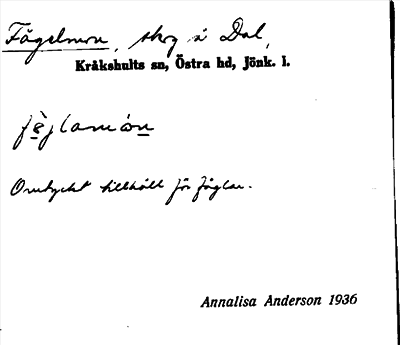 Fågelmon, skog å Dal,
Kråkshults sn, Östra hd, Jönk. l.
Omtyckt tillhåll för fåglar.
Annalisa Anderson 1936